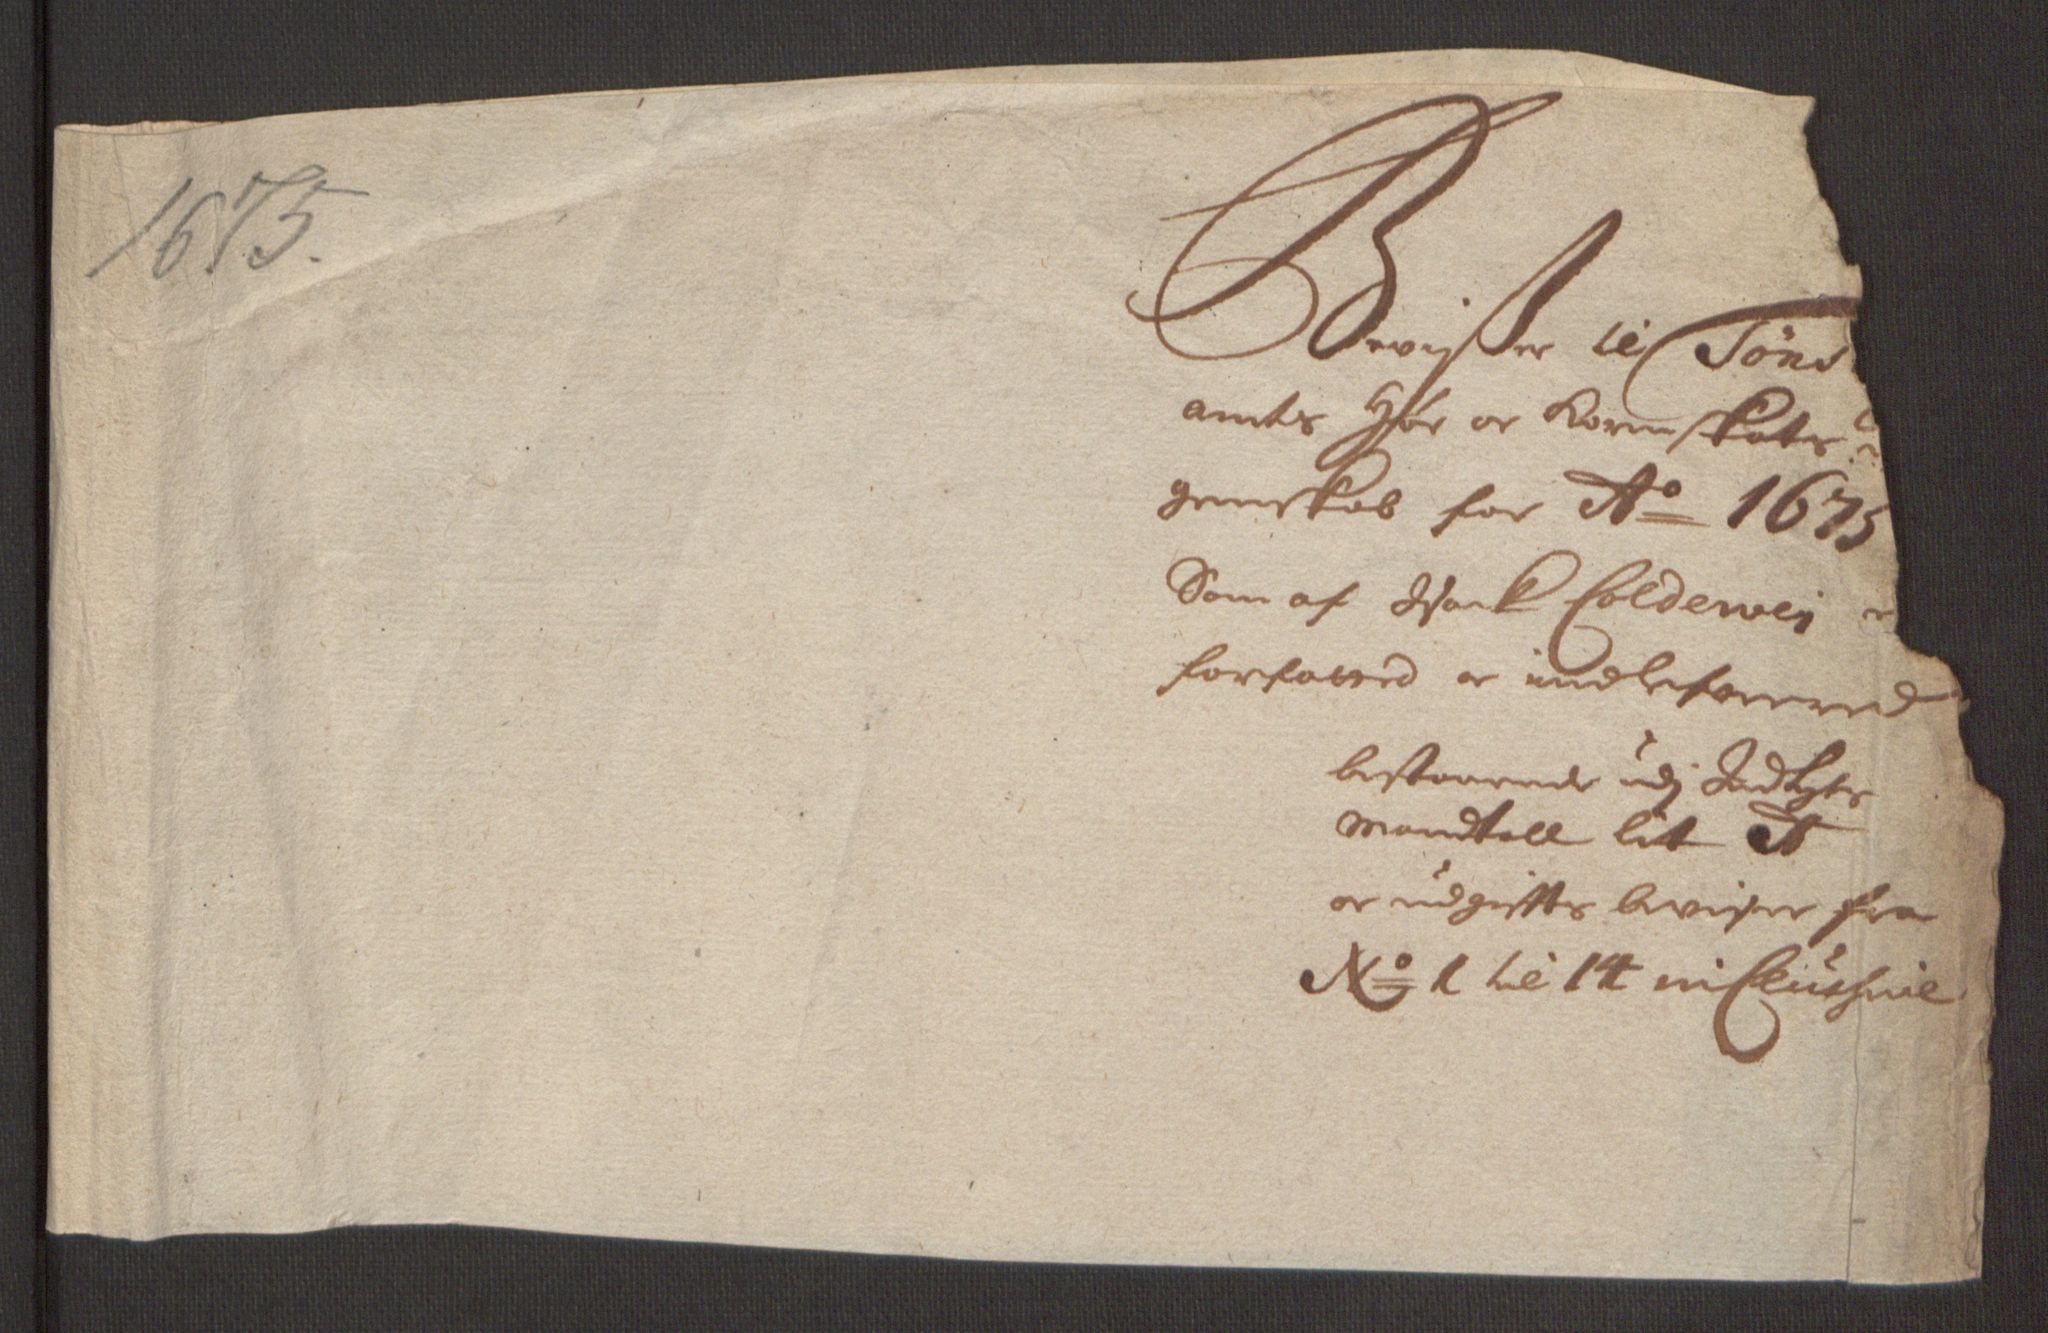 1675.
Bevißer til Töns
amts Hör oc Korn skats
genskab for Ao 1675
Som af Isack Coldewei
forfatted oc indlefvered
bestaaende udj Indtegts
Mandtall lit A
oc udgiffts beviser fra
No 1 til 14 inCluusive